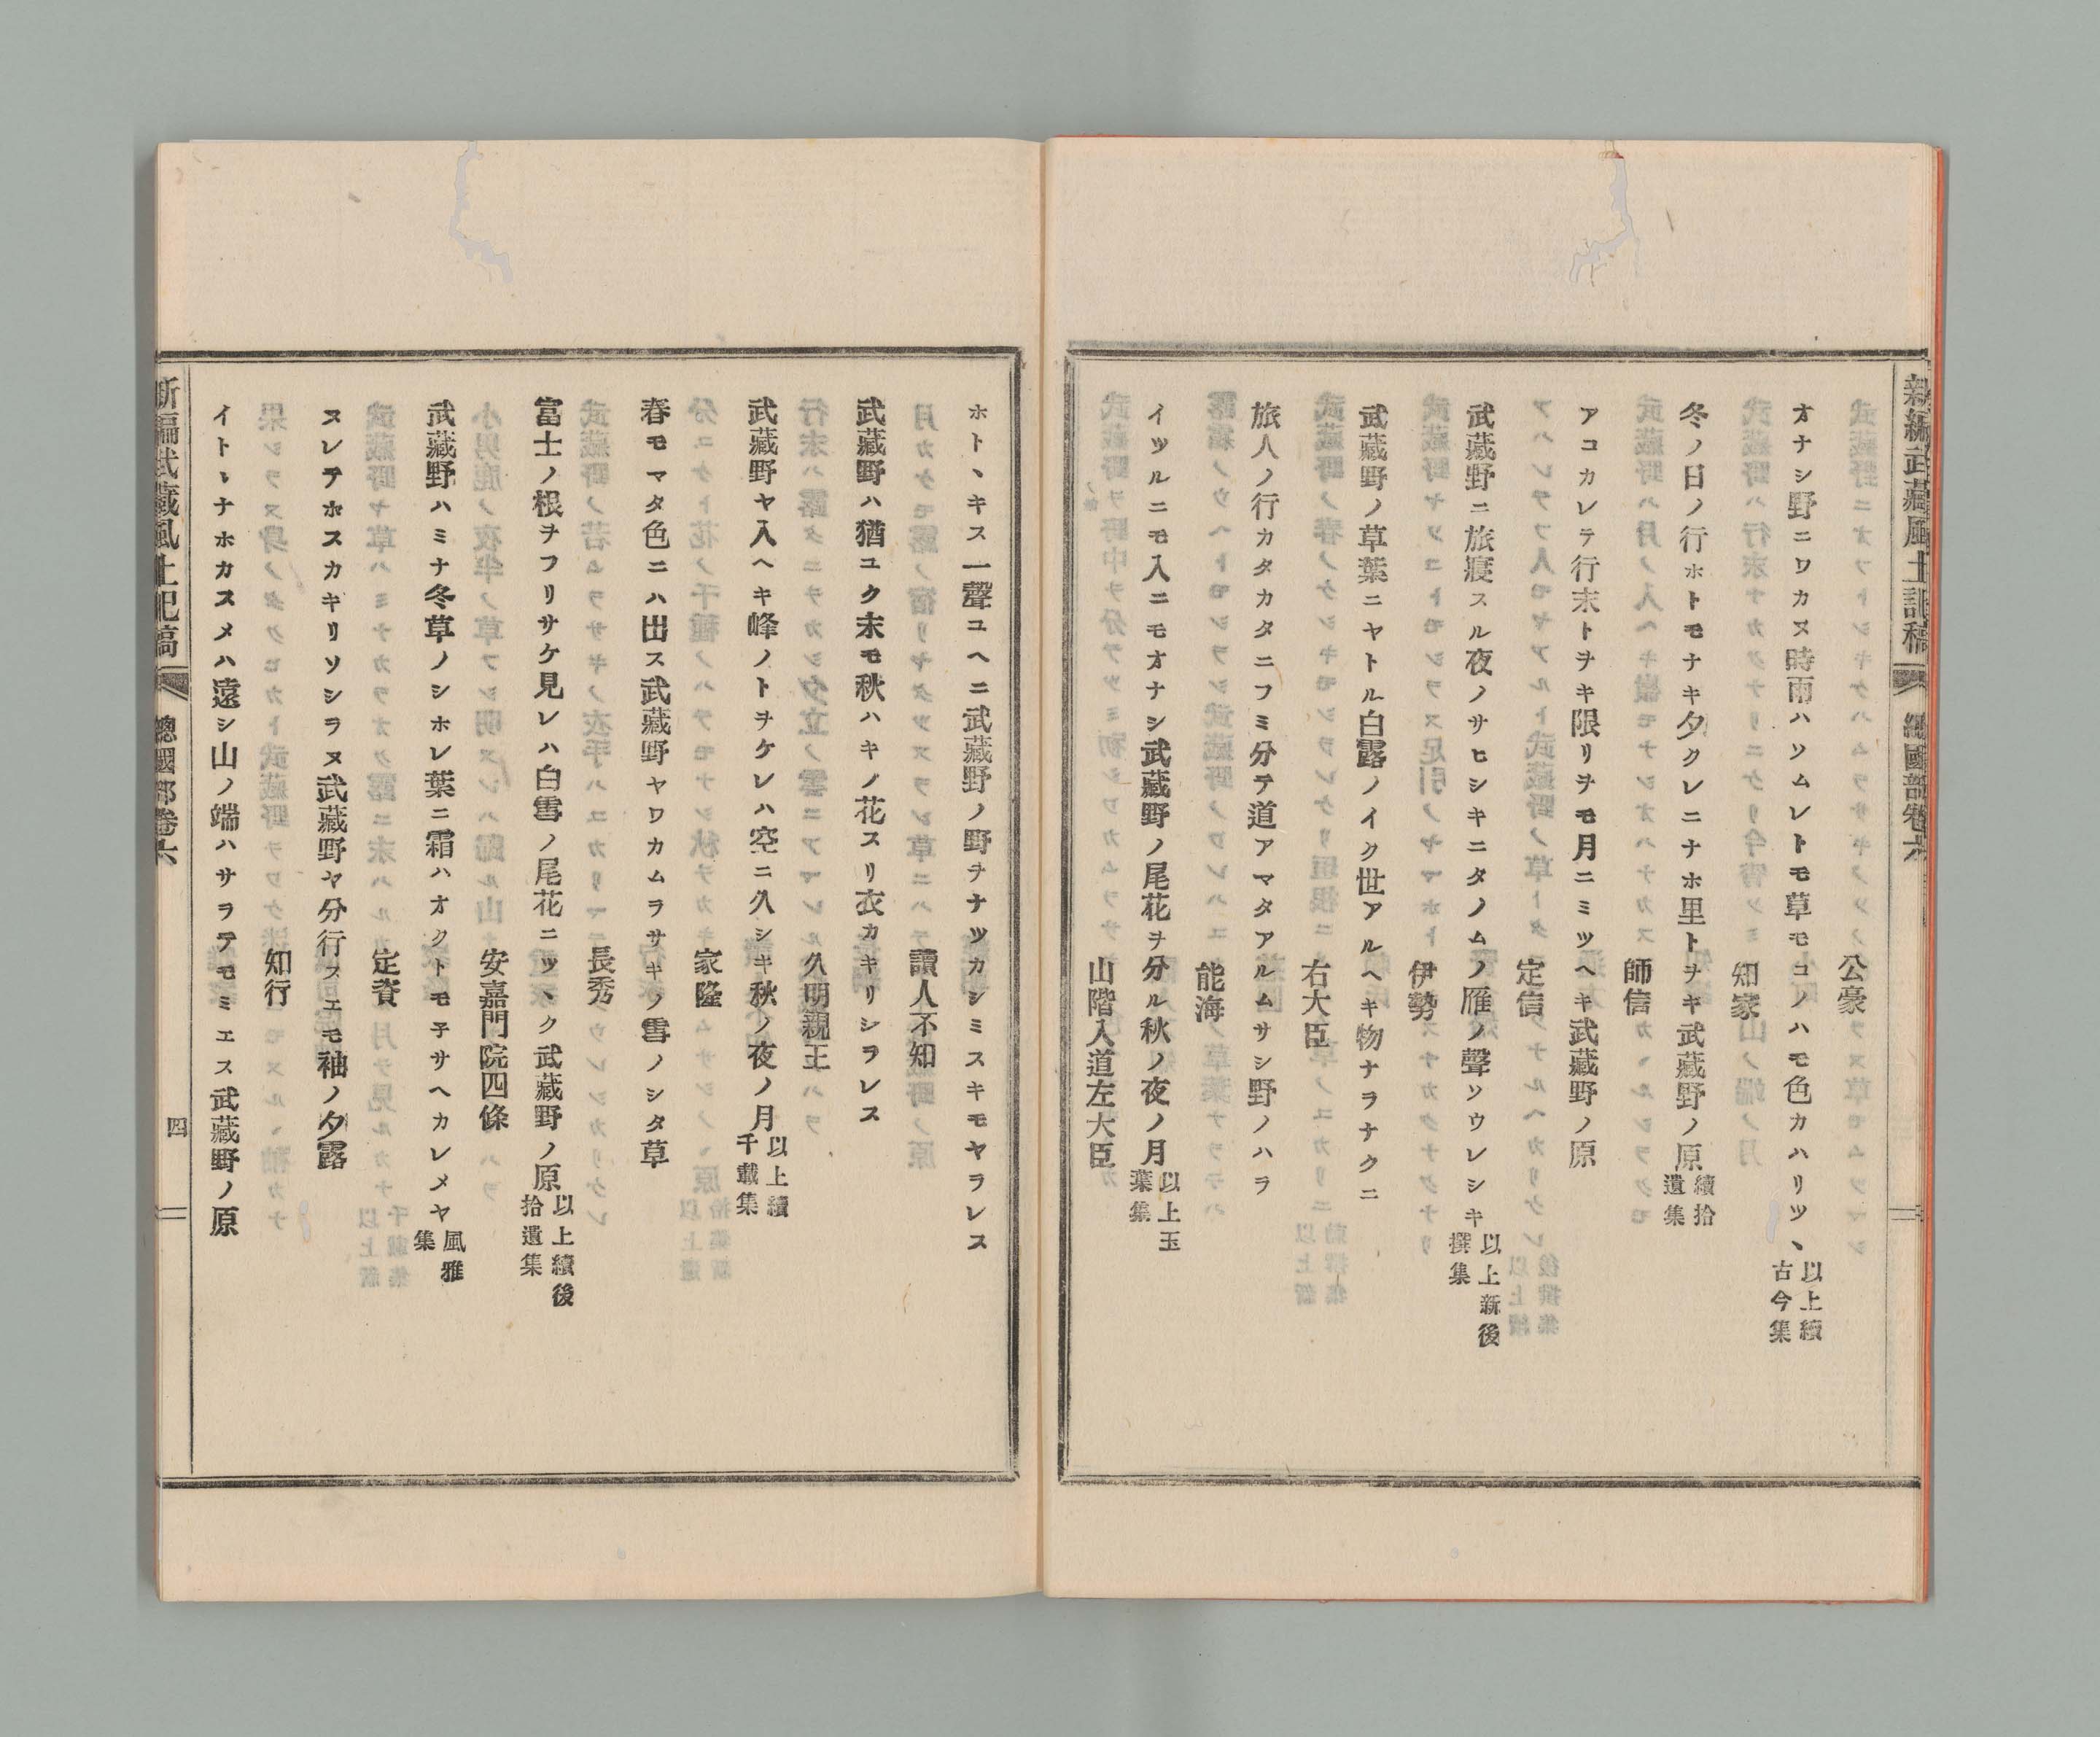 新編武藏風土記稿
總國部卷六
公豪
オナシ野ニワカヌ時雨ハソムレトモ草モコノハモ色カハリツヽ以上續古今集
知家
冬ノ日ノ行ホトモナキ夕クレニナホ里トヲキ武藏野ノ原續拾遺集
師信
アコカレテ行末トヲキ限リヲモ月ニミツヘキ武藏野ノ原
定信
武藏野ニ旅寢スル夜ノサヒシキニタノムノ雁ノ聲ソウレシキ以上新後撰集
伊勢
武藏野ノ草葉ニヤトル白露ノイク世アルヘキ物ナラナクニ
右大臣
旅人ノ行カタカタニフミ分テ道アマタアルムサシ野ノハラ
能海
イツルニモ入ニモオナシ武藏野ノ尾花ヲ分ル秋ノ夜ノ月以上玉葉集
山階入道左大臣
ホトヽキス一聲ユヘニ武藏野ノ野ヲナツカシミスキモヤラレス
讀人不知
武藏野ハ猶ユク末モ秋ハキノ花スリ衣カキリシラレス
久明親王
武藏野ヤ入ヘキ峰ノトヲケレハ空ニ久シキ秋ノ夜ノ月以上續千載集
家隆
春モマタ色ニハ出ス武藏野ヤワカムラサキノ雪ノシタ草
長秀
富士ノ根ヲフリサケ見レハ白雪ノ尾花ニツヽク武藏野ノ原以上續後拾遺集
安嘉門院四條
武藏野ハミナ冬草ノシホレ葉ニ霜ハオクトモ子サヘカレメヤ風雅集
定資
スレテホスカキリソシラヌ武藏野ヤ分行スエモ袖ノ夕露
知行
イトヽナホカスメハ遠シ山ノ端ハサラテモミエス武藏野ノ原
新編武藏風土記稿
總國部卷六
四